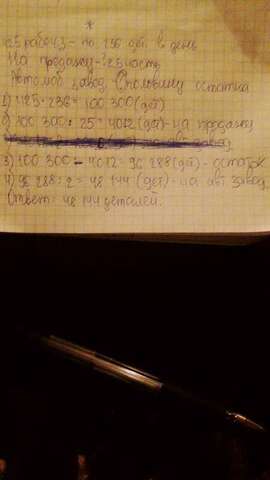 *
раб - по 236 дет. в день
На продажу - 1/25 часть
Автомоб завод. Половину остатка
1) 425 · 236 = 100 300 (дет)
2) 100 300 : 25 = 4012 (дет) - на продажу
3) 100 300 - 4012 = 96 288 (дет) - остаток
4) 96 288 : 2 = 48 144 (дет) - на авт. завод
Ответ: 48 144 деталей.